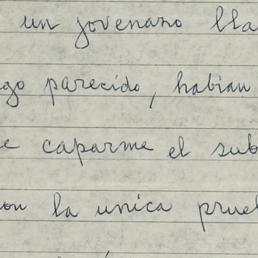 un jovenazo lla
go parecido, habian
e caparme el sub
on la unica prue